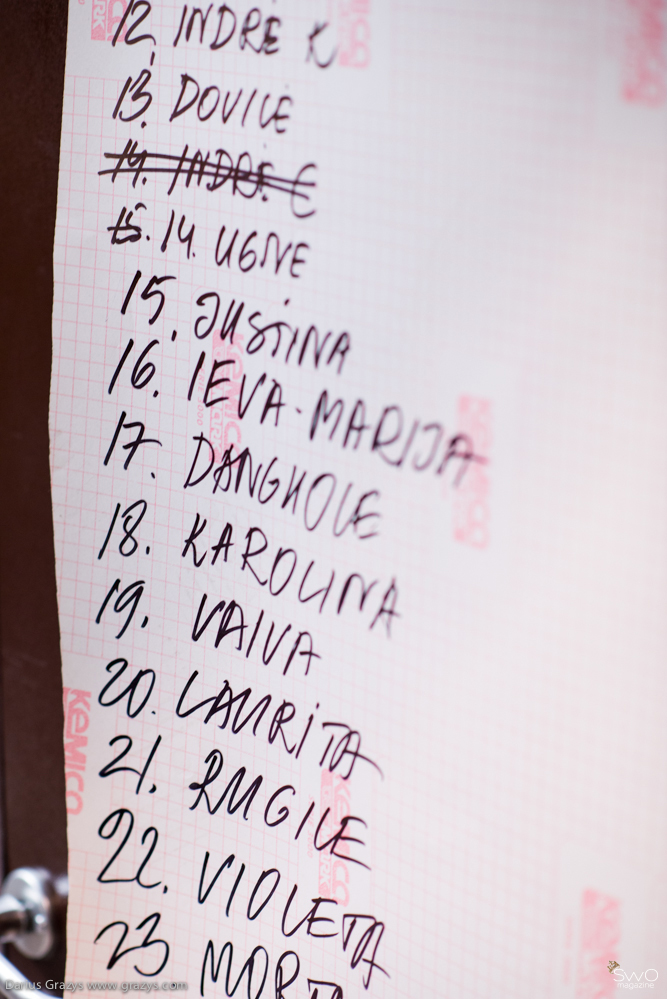 12. INDRĖ K
13. DOVILĖ
14. INDRĖ Č
15. 14. UGNĖ
15. JUSTINA
16. IEVA-MARIJA
17. DANGUOLĖ
18. KAROLINA
19. VAIVA
20. LAURITA
21. RUGILE
22. VIOLETA
23 MORTA
KEMICO
KEMICO
KEMICO
KEMICO
Darius Grazys www.grazys.com
SWO
magazine